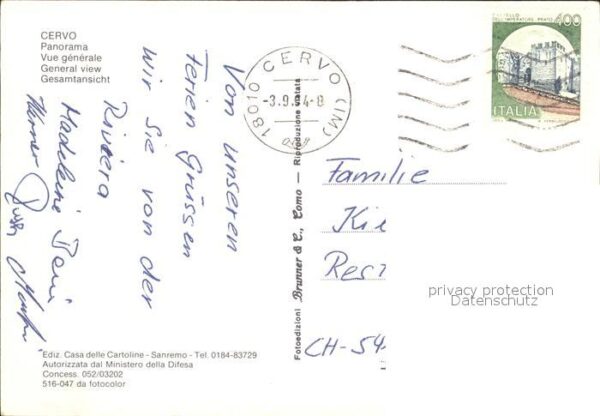 CERVO
Panorama
Vue générale
General view
Gesamtansicht
Von unseren
Ferien Grüssen
wir Sie von der
Riviera
Madeleine
Werner
18010 CERVO (IM)
CASTELLO
DELL'IMPERATORE - PRATO
400
ITALIA
Familie
Ki
Res
CH-54
privacy protection
Datenschutz
Fotoedizioni Brunner & C., Como - Riproduzione vietata
Ediz. Casa delle Cartoline - Sanremo - Tel. 0184-83729
Autorizzata dal Ministero della Difesa
Concess. 052/03202
516-047 da fotocolor